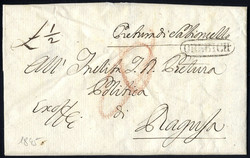 £ 1/2
Pretura di Sabioncello
OREBICH
All' Inclita I. R. Pretura
Politica
di
Ragusa
1845